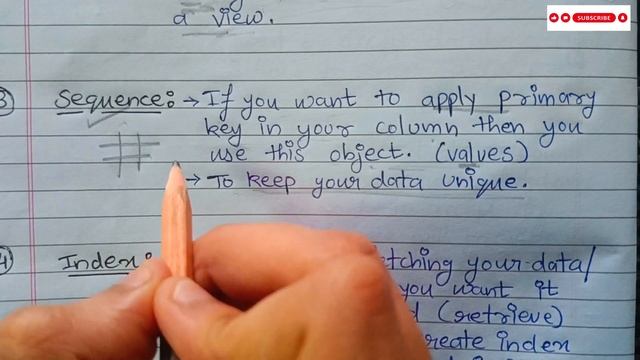 a view.
SUBSCRIBE
3 Sequence: → If you want to apply primary
key in your column then you
use this object. (values)
→ To keep your data unique.
4 Index: tching your data/
you want it
(retrieve)
create index